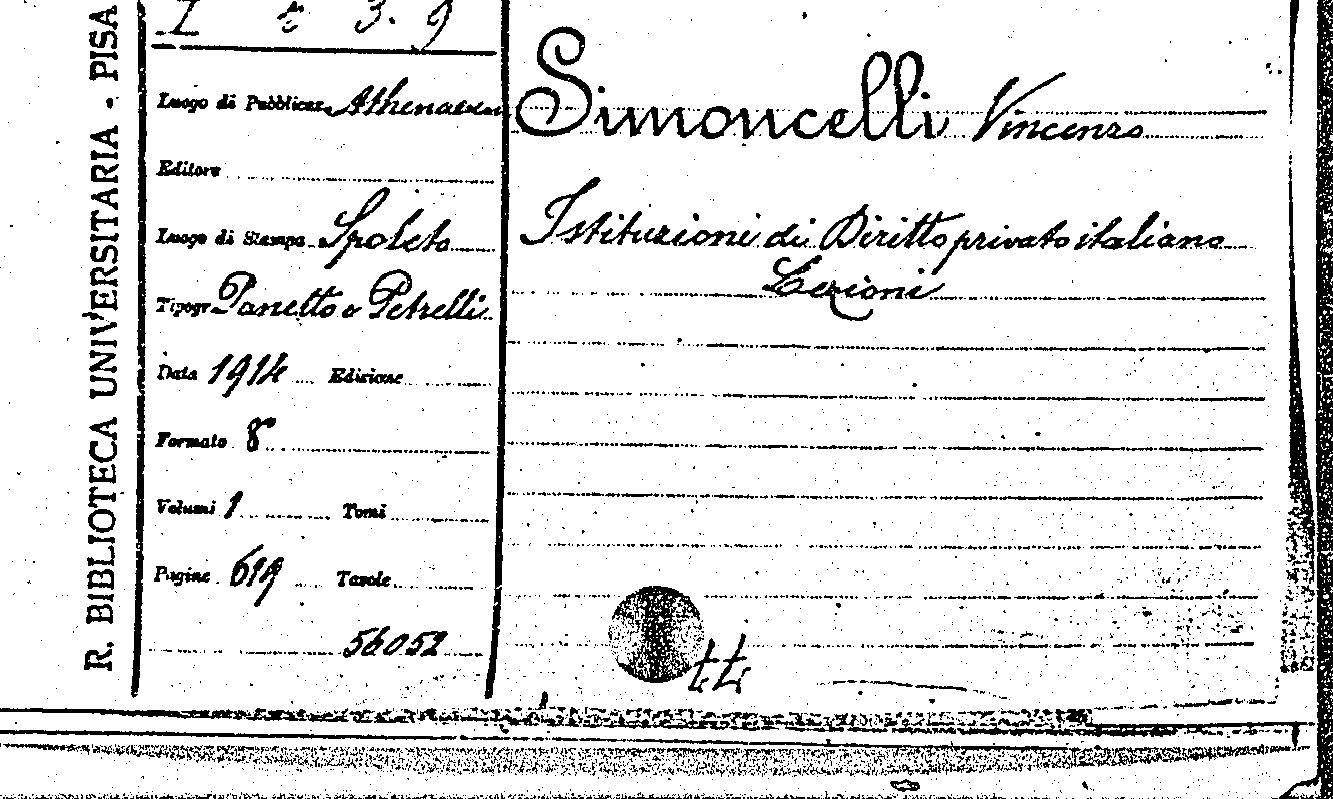 R. BIBLIOTECA UNIVERSITARIA - PISA
I t 3. 9
Luogo di Pubblicaz. Athenaeum
Editore
Luogo di Stampa Spoleto
Tipogr. Panetto e Petrelli
Data 1914 Edizione
Formato 8°
Volumi 1 Tomi
Pagine 619 Tavole
56052
Simoncelli Vincenzo
Istituzioni di Diritto privato italiano
Lezioni